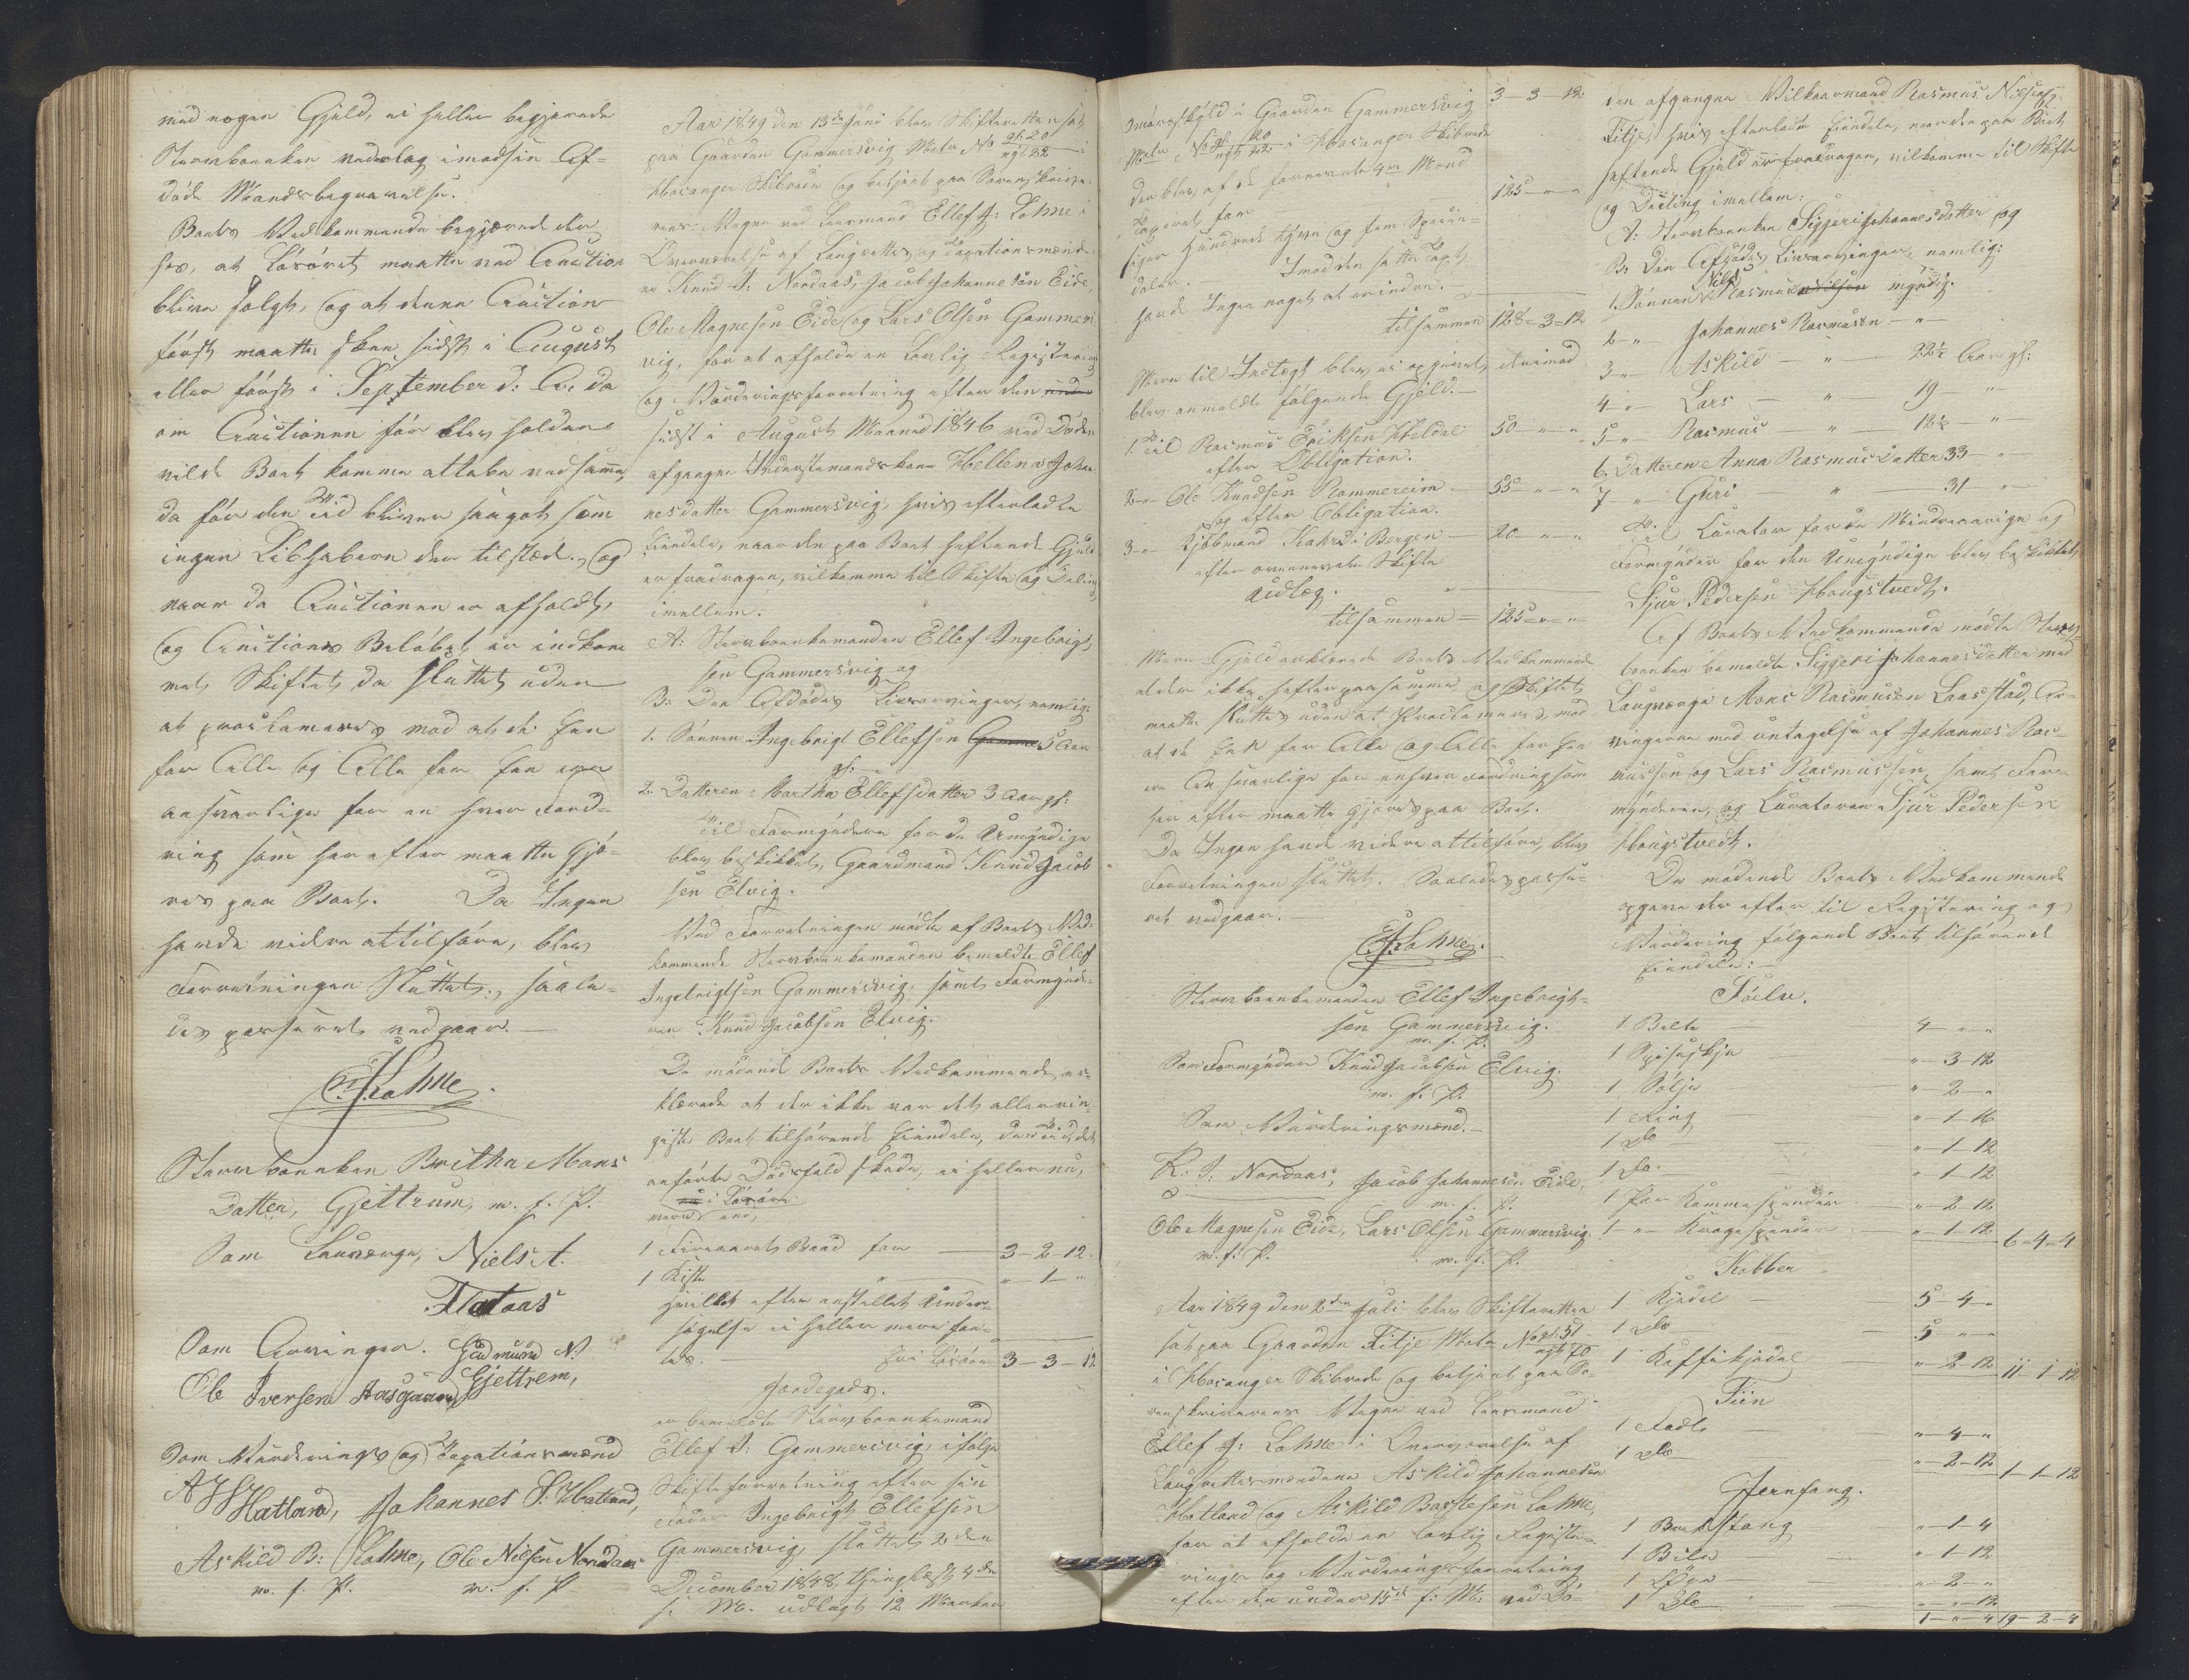 med nogen Gjæld, ei heller begjærede
Stervboenken vederlag imod sin Af-
døde Mands begravelse.
Boets Vedkommende begjærede der
hos, at Løsøret maatte ved Auction
blive solgt, og at denne Auction
først maatte skee sidst i August
eller først i September d: A: da
om Auctionen før blev holden
vilde Boet komme at tabe ved samme,
da før den Tid bliver saagot som
ingen Liebhabere der tilstæde, og
naar da Auctionen er afholdt,
og Auctions Beløbet er indkom
met, Skiftet da sluttet uden
at proclameres mod at de Een
for Alle og Alle for Een ere
ansvarlige for en hver Ford-
ring som herefter maatte gjø-
res paa Boet. Da Ingen
havde videre at tilføre, blev
Forretningen Sluttet, saale-
des passeret vedgaaes.
E J Lohne.
Stervboenken Britha Mons
Datter, Gjettrum, m. f. P.
Som Laugværge, Niels A.
Flataas
Som Arvinger. Gudmund N:
Gjettrem,
Ole Iversen Aasgaard
Som Vurderings og Taxationsmænd
A Hatland, Johannes S. Hatland,
Askild B: Lohne, Ole Nielsen Nordaas
m. f. P. m. f. P
Aar 1849 den 13de Juni blev Skifteretten sat
paa Gaarden Gammersvig Matr No gl: 20 nyt 22 i
Hosanger Skibrede og betjent paa Sorenskrive-
rens Vegne ved Leensmand Ellef J: Lohne i
Overværelse af Laugrettes og Taxationsmænde-
ne Knud J: Nordaas, Jacob Johannesen Eide,
Ole Magnesen Eide og Lars Olsen Gammers
vig, for at afholde en Lovlig Registering
og Vurderingsforretning efter den
sidst i August Maaned 1846 ved Døden
afgangne Inderstemandskone Hellena Johan
nesdatter Gammersvig, hvis efterladte
Eiendele, naar den paa Boet heftende Gjeld
er fradragen, vil komme til Skifte og Deling
imellem.
A: Stervboenkemanden Ellef Ingebrigt
sen Gammersvig og
B: Den Afdødes Livsarvinger, nemlig:
1. Sønnen Ingebrigt Ellefsen 5 Aar
gl:
2. Datteren Martha Ellefsdatter 3 Aar gl:
Til Formynder for de Umyndige
blev beskikket, Gaardmand Knud Jacob
sen Elvig.
Ved Forretningen mødte af Boets Ved-
kommende Stervboenkemanden bemeldte Ellef
Ingebrigtsen Gammersvig, samt Formynde-
ren Knud Jacobsen Elvig.
De mødende Boets Vedkommende, er-
klærede at der ikke var det allerrin-
geste Boet tilhørende Eiendele, den Tid det
anførte Dødsfald skede, ei heller nu,
i Løsøre
1 Firaaret Baad for 3-2-12
1 Kiste " " - 1 - "
hvilket efter anstillet Under-
søgelse ei heller mere fan-
tes. Er i Løsøre 3-3-12
Jordegods.
er bemeldte Stervboenkemand
Ellef I: Gammersvig, ifølge
Skifteforretning efter sin
Fader Ingebrigt Ellefsen
Gammersvig, sluttet 2den
December 1848, thinglæst 4de
s: M. udlagt 12 Marker
Smørs skyld i Gaarden Gammersvig 3-3-12
Matr No gl: 20 nyt 22 i Hosanger Skibrede
den blev af de fornævnte 4re Mænd
Taxeret for 125-"-"
siger Hundrede tyve og fem Specie-
daler. Imod den satte Taxt
havde Ingen noget at erindre.
tilsammen 128-3-12
Mere til Indtægt blev ei opgivet, derimod
blev anmeldt følgende Gjeld.
1. Til Rasmus Eriksen Heldal 50-"-"
efter Obligation.
2-"- Ole Knudsen Rommereim 55-"-"
og efter Obligation.
3-"- Kjøbmand Kahrs i Bergen 20-"-"
efter ovennævnte Skifte
Udlæg.
tilsammen = 125="="
Mere Gjeld erklærede Boets Vedkommende
alder ikke hefter paa samme, og Skiftet
maatte sluttes uden at Proclameres, mod
at de Een for Alle og Alle for Een
ere Ansvarlige for enhver Fordring som
herefter maatte gjøres paa Boet.
Da Ingen havde videre at tilføre, blev
Forretningen sluttet. Saaledes passe-
ret vedgaaes.
E J Lohne.
Stervboenkemanden Ellef Ingebrigt-
sen Gammersvig.
m. f. P.
Som Formynder Knud Jacobsen Elvig.
m. f. P.
Som Vurderingsmænd.
K. J. Nordaas, Jacob Johannesen Eide,
m. f. P.
Ole Magnesen Eide, Lars Olsen Gammersvig.
m. f. P. m. f. P.
Aar 1849 den 2den Juli blev Skifteretten
sat paa Gaarden Fitje Matr No gl: 51 nyt 70
i Hosanger Skibrede og betjent paa So-
renskriverens Vegne ved Leensmand
Ellef J: Lohne i Overværelse af
Laugrettesmændene Askild Johannesen
Hatland og Askild Bastesen Lohne,
for at afholde en lovlig Registe-
rings og Vurderingsforretning
efter den under 15de f: M: ved Dø-
den afgangne Vilkaarmand Rasmus Nielsen
Fitje, hvis efterladte Eiendele, naar den paa Boet
heftende Gjeld er fradragen, vil komme til Skifte
og Deeling imellem:
A: Stervboenken Siggeri Johannesdatter og
B: Den Afdødes Livsarvinger, nemlig:
1. Sønnen Nils Rasmussen myndig.
2 " Johannes Rasmusen - " -
3 " Askild - " - 22½ Aar gl:
4 " Lars - " - 19 - "
5 " Rasmus - " - 12½ - "
6. Datteren Anna Rasmus Datter 33 - "
7 " Guri " - 31 - "
Til Curator for de Mindreaarige og
Formynder for den Umyndige blev beskikket
Sjur Pedersen Hougstvedt.
Af Boets Vedkommende mødte Sterv-
boenken bemeldte Siggeri Johannesdatter med
Laugværge Mons Rasmusen Laastad, Ar-
vingerne med untagelse af Johannes Ras-
mussen og Lars Rasmussen, samt For-
mynderen, og Curatoren Sjur Pedersen
Hougstvedt.
De mødende Boets Vedkommende
opgave derefter til Registering og
Vurdering følgende Boet tilhørende
Eiendele:
Sølv.
1 Belte 4-"-"
1 Spiseskje "-3-12
1 Sølje "-2-"
1 Ring "-1-16
1 Do "-1-12
1 Do "-1-12
1 Par Kommespender "-2-12
1 " Kragespender "-1-12 6-4-4
Kobber
1 Kjedel 5-4-"
1 Do 5-"-"
1 Kaffekjedel "-2-12 11-1-12
Tin
1 Fadt "-4-"
1 Do "-2-12 1-1-12
Jernfang.
1 Brekstang "-1-4
1 Bile "-1-12
1 Øxe "-2-"
1 Do "-"-12
1-"-4 19-2-4